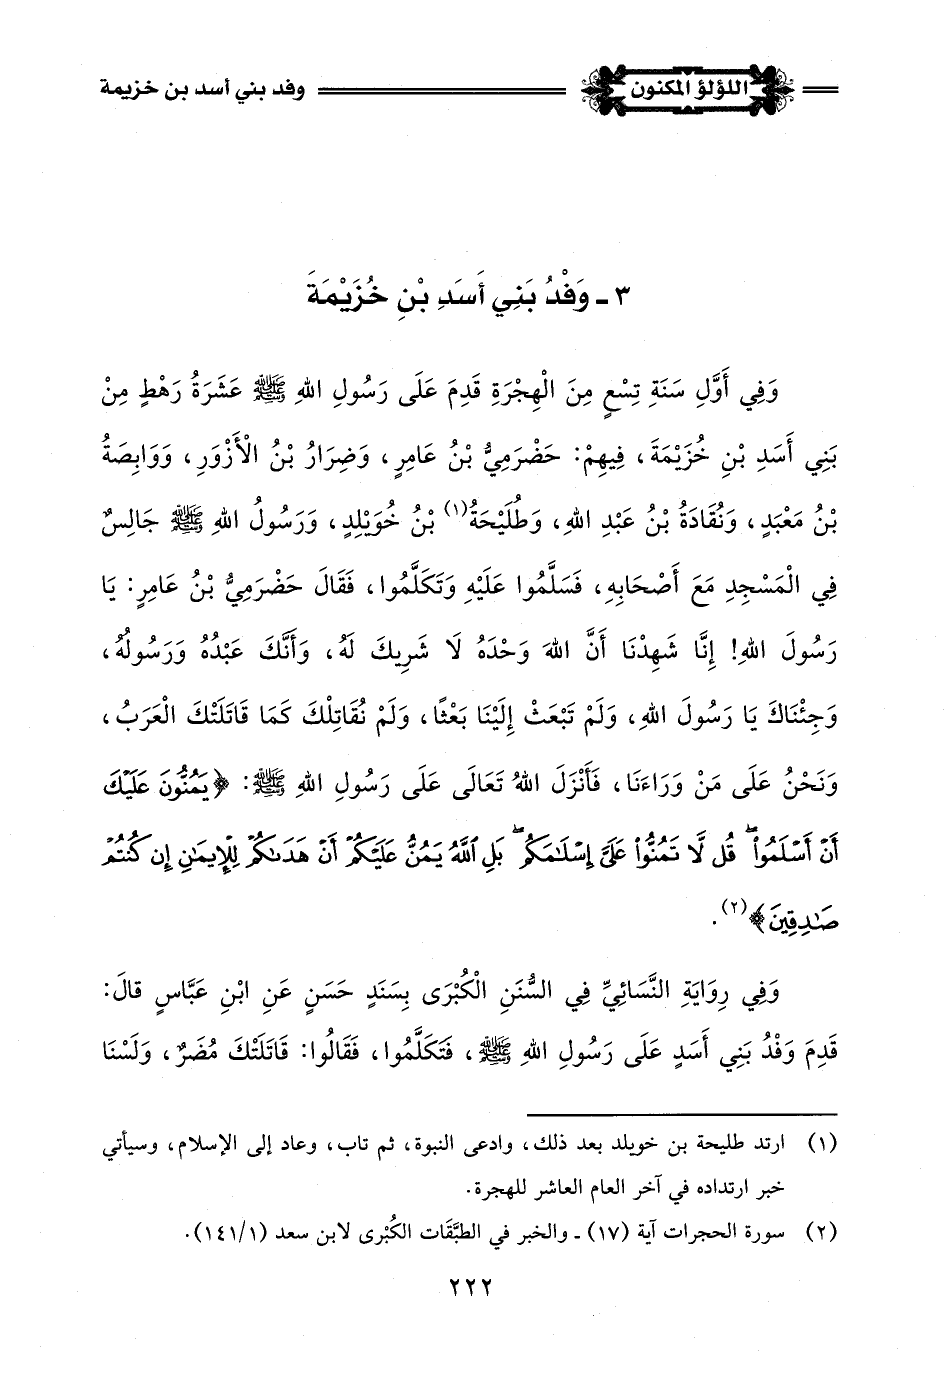 اللؤلؤ المكنون
وفد بني أسد بن خزيمة
٣ ـ وَفْدُ بَنِي أَسَدِ بْنِ خُزَيْمَةَ
وَفِي أَوَّلِ سَنَةِ تِسْعٍ مِنَ الْهِجْرَةِ قَدِمَ عَلَى رَسُولِ اللهِ ﷺ عَشَرَةُ رَهْطٍ مِنْ
بَنِي أَسَدِ بْنِ خُزَيْمَةَ، فِيهِمْ: حَضْرَمِيُّ بْنُ عَامِرٍ، وَضِرَارُ بْنُ الْأَزْوَرِ، وَوَابِصَةُ
بْنُ مَعْبَدٍ، وَنُقَادَةُ بْنُ عَبْدِ اللهِ، وَطُلَيْحَةُ(١) بْنُ خُوَيْلِدٍ، وَرَسُولُ اللهِ ﷺ جَالِسٌ
فِي الْمَسْجِدِ مَعَ أَصْحَابِهِ، فَسَلَّمُوا عَلَيْهِ وَتَكَلَّمُوا، فَقَالَ حَضْرَمِيُّ بْنُ عَامِرٍ: يَا
رَسُولَ اللهِ! إِنَّا شَهِدْنَا أَنَّ اللهَ وَحْدَهُ لَا شَرِيكَ لَهُ، وَأَنَّكَ عَبْدُهُ وَرَسُولُهُ،
وَجِئْنَاكَ يَا رَسُولَ اللهِ، وَلَمْ تَبْعَثْ إِلَيْنَا بَعْثًا، وَلَمْ نُقَاتِلْكَ كَمَا قَاتَلَتْكَ الْعَرَبُ،
وَنَحْنُ عَلَى مَنْ وَرَاءَنَا، فَأَنْزَلَ اللهُ تَعَالَى عَلَى رَسُولِ اللهِ ﷺ: ﴿يَمُنُّونَ عَلَيْكَ
أَنْ أَسْلَمُوا۟ ۖ قُل لَّا تَمُنُّوا۟ عَلَىَّ إِسْلَٰمَكُم ۖ بَلِ ٱللَّهُ يَمُنُّ عَلَيْكُمْ أَنْ هَدَىٰكُمْ لِلْإِيمَٰنِ إِن كُنتُمْ
صَٰدِقِينَ﴾(٢).
وَفِي رِوَايَةِ النَّسَائِيِّ فِي السُّنَنِ الْكُبْرَى بِسَنَدٍ حَسَنٍ عَنِ ابْنِ عَبَّاسٍ قالَ:
قَدِمَ وَفْدُ بَنِي أَسَدٍ عَلَى رَسُولِ اللهِ ﷺ، فَتَكَلَّمُوا، فَقَالُوا: قَاتَلَتْكَ مُضَرٌ، وَلَسْنَا
(١) ارتد طليحة بن خويلد بعد ذلك، وادعى النبوة، ثم تاب، وعاد إلى الإسلام، وسيأتي
خبر ارتداده في آخر العام العاشر للهجرة.
(٢) سورة الحجرات آية (١٧) ـ والخبر في الطبَّقَات الكُبْرى لابن سعد (١/١٤١).
٢٢٢